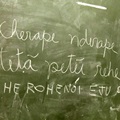 Cherape nderape
tetã petẽ rehe
HE ROHENÓI EJU